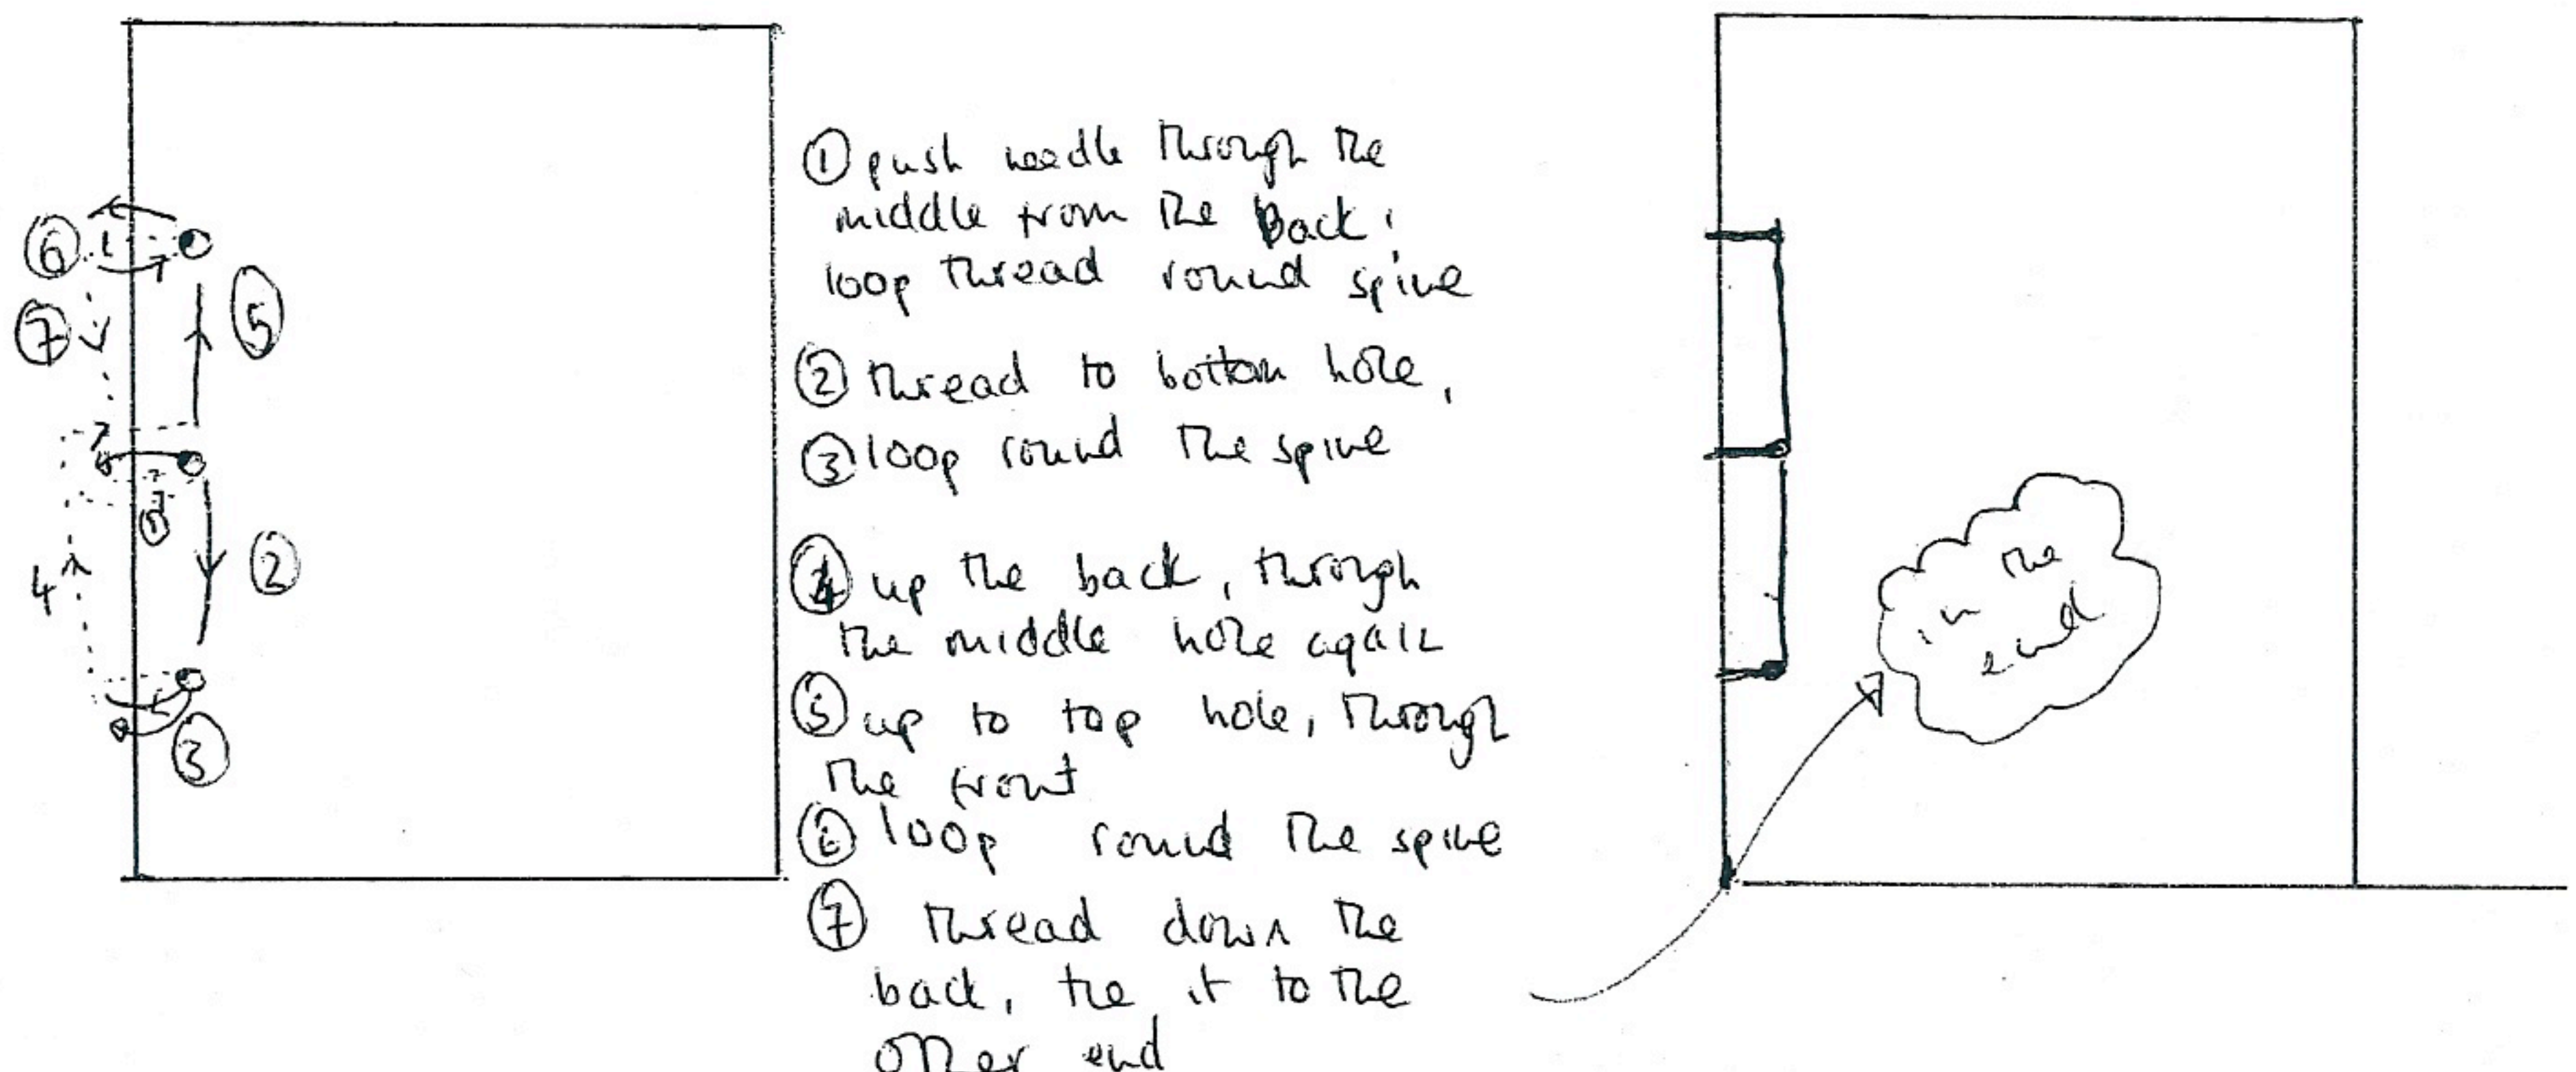 ⑥
⑦
⑤
①
②
4
③
① push needle through the
middle from the back,
loop thread round spine
② thread to bottom hole,
③ loop round the spine
④ up the back, through
the middle hole again
⑤ up to top hole, through
the front
⑥ loop round the spine
⑦ thread down the
back, tie it to the
other end
in the
end